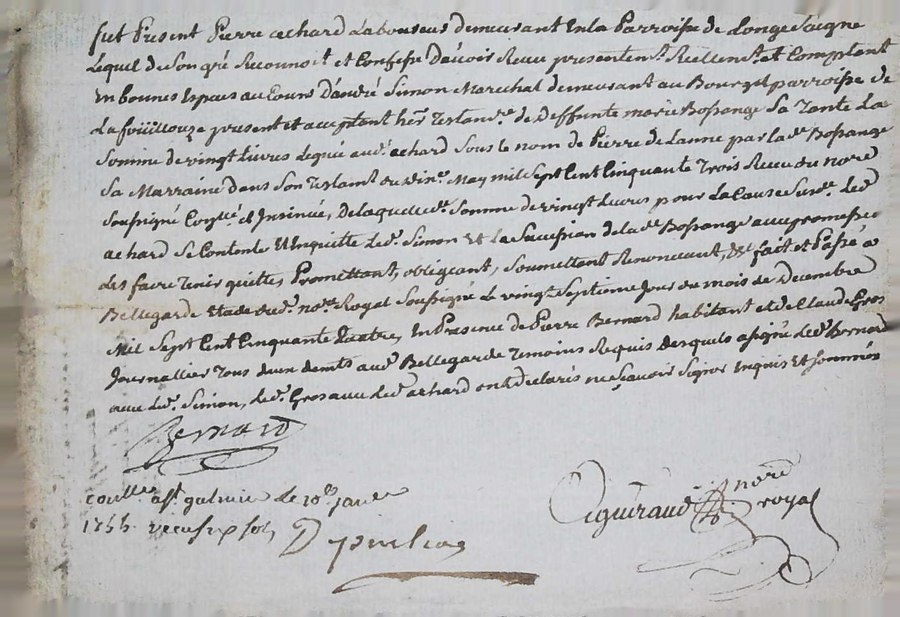 fut Présent Pierre achard Laboureur demeurant En la Parroisse de Longe Saigne
Lequel de Son gré Reconnoit et Confesse D'avoir Receu presentemt. Réellemt. et Comptant
En bonnes Espèces au Cours D'andré Simon Marechal demeurant au Bourg et parroisse de
La fouillouze present et acceptant hér. Testamre. de Deffunte marie Bossange Sa Tante La
Somme de vingt Livres Leguée aud. achard Sous le nom de Pierre de Lanne par lad. Bossange
Sa Marraine dans Son Testamt. du May mil Sept Cent Cinquante Trois Receu du nore.
Soussigné Conllé. et Insinué, De laquelle de. Somme de vingt Livres pour La Cause Susde. Led.
achard Se Contente Et En quitte Led. Simon Et La Succession de la de. Bossange avec promesse
Les faire Tenir quittes, Promettant, obligeant, Soumettant Renonceant, &c. fait et Passé à
Bellegarde Etude dud. nore. Royal Soussigné Le vingt Septieme Jour du mois de Decembre
Mil Sept Cent Cinquante Quatre, En Presence de Pierre Bernard habitant et de Claude Gros
Journallier Tous deux demts. aud. Bellegarde Temoins Requis Desquels a signé led. Bernard
avec led. Simon, Led. Gros avec led. achard ont declarés ne Sçavoir Signer Enquis Et Sommés
Bernard
Conllé. a St. galmier le 10e. janer.
1755. receu Six Sols
Ciguiraud nore. royal